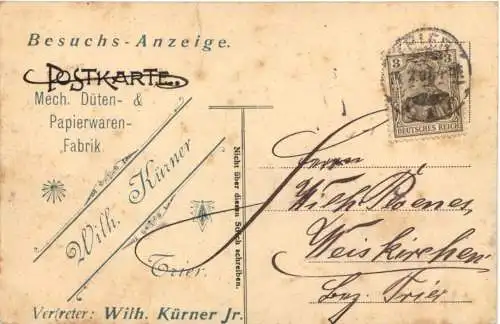 Besuchs-Anzeige.
POSTKARTE.
Mech. Düten- &
Papierwaren-
Fabrik.
Wilh. Kürner
Trier.
Vertreter: Wilh. Kürner Jr.
Nicht über diesen Strich schreiben.
3 3
DEUTSCHES REICH
Herrn
Wilh.
Weiskirchen
Bez. Trier